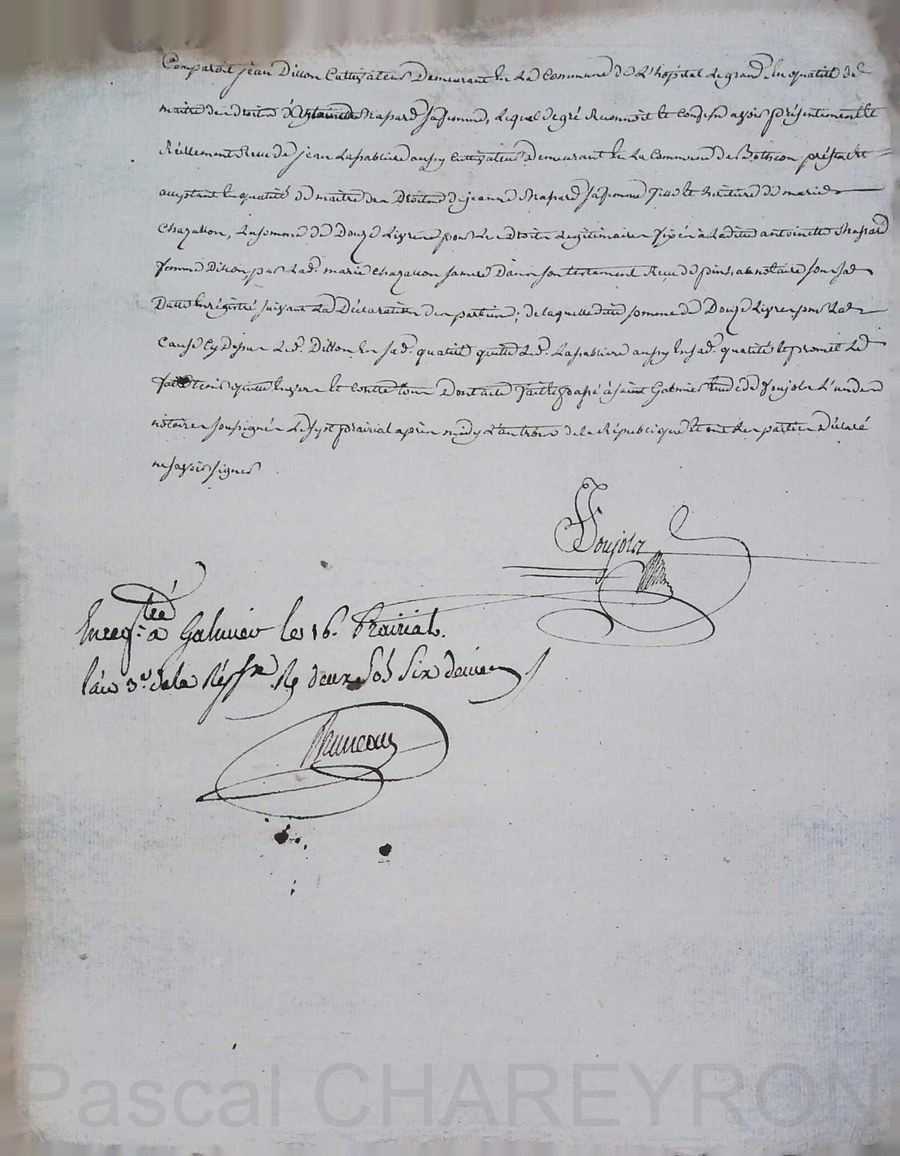 Comparoit jean Dillon Cultivateur Demeurant En La Commune de L'hopital Legrand En qualité de
maitre des droits d'antoinette Chapard Sa femme, Lequel de gré Reconnoit Et Confesse avoir présentement Et
Réellement Receu de jean Lasablière aussy Cultivateur demeurant En La Commune de Bothéon présent Et
acceptant En qualité de maitre des Droits de jeanne Chapard Sa femme fille Et héritière de marie
Chazallon, La Somme de Douze Livres pour Les Droits Légitimaires fixés à Ladite antoinette Chapard
femme Dillon par Lad. marie Chazallon Sa mère Dans Son testament Receu de notaire Sous Sa
Datte Enregistré Suivant La Déclaration des parties; de laquelle dite Somme de Douze Livres pour Lad.
Cause Cy Dessus Led. Dillon En Sad. qualité quitte Led. Lasablière aussy En Sad. qualité Et promet L'en
faire tenir quitte Envers Et Contre tous Dont acte fait Et passé à Saint Galmier Etude de Soujols L'un des
notaires Soussignés Le Sept prairial après midy L'an trois de la République Et ont Les parties Déclaré
ne Savoir Signer
Soujols
Enregtré à Galmier les 16. Prairial.
l'an 3e. de la Répe. Rç deux Sols Six deniers
Bruneau
Pascal CHAREYRON